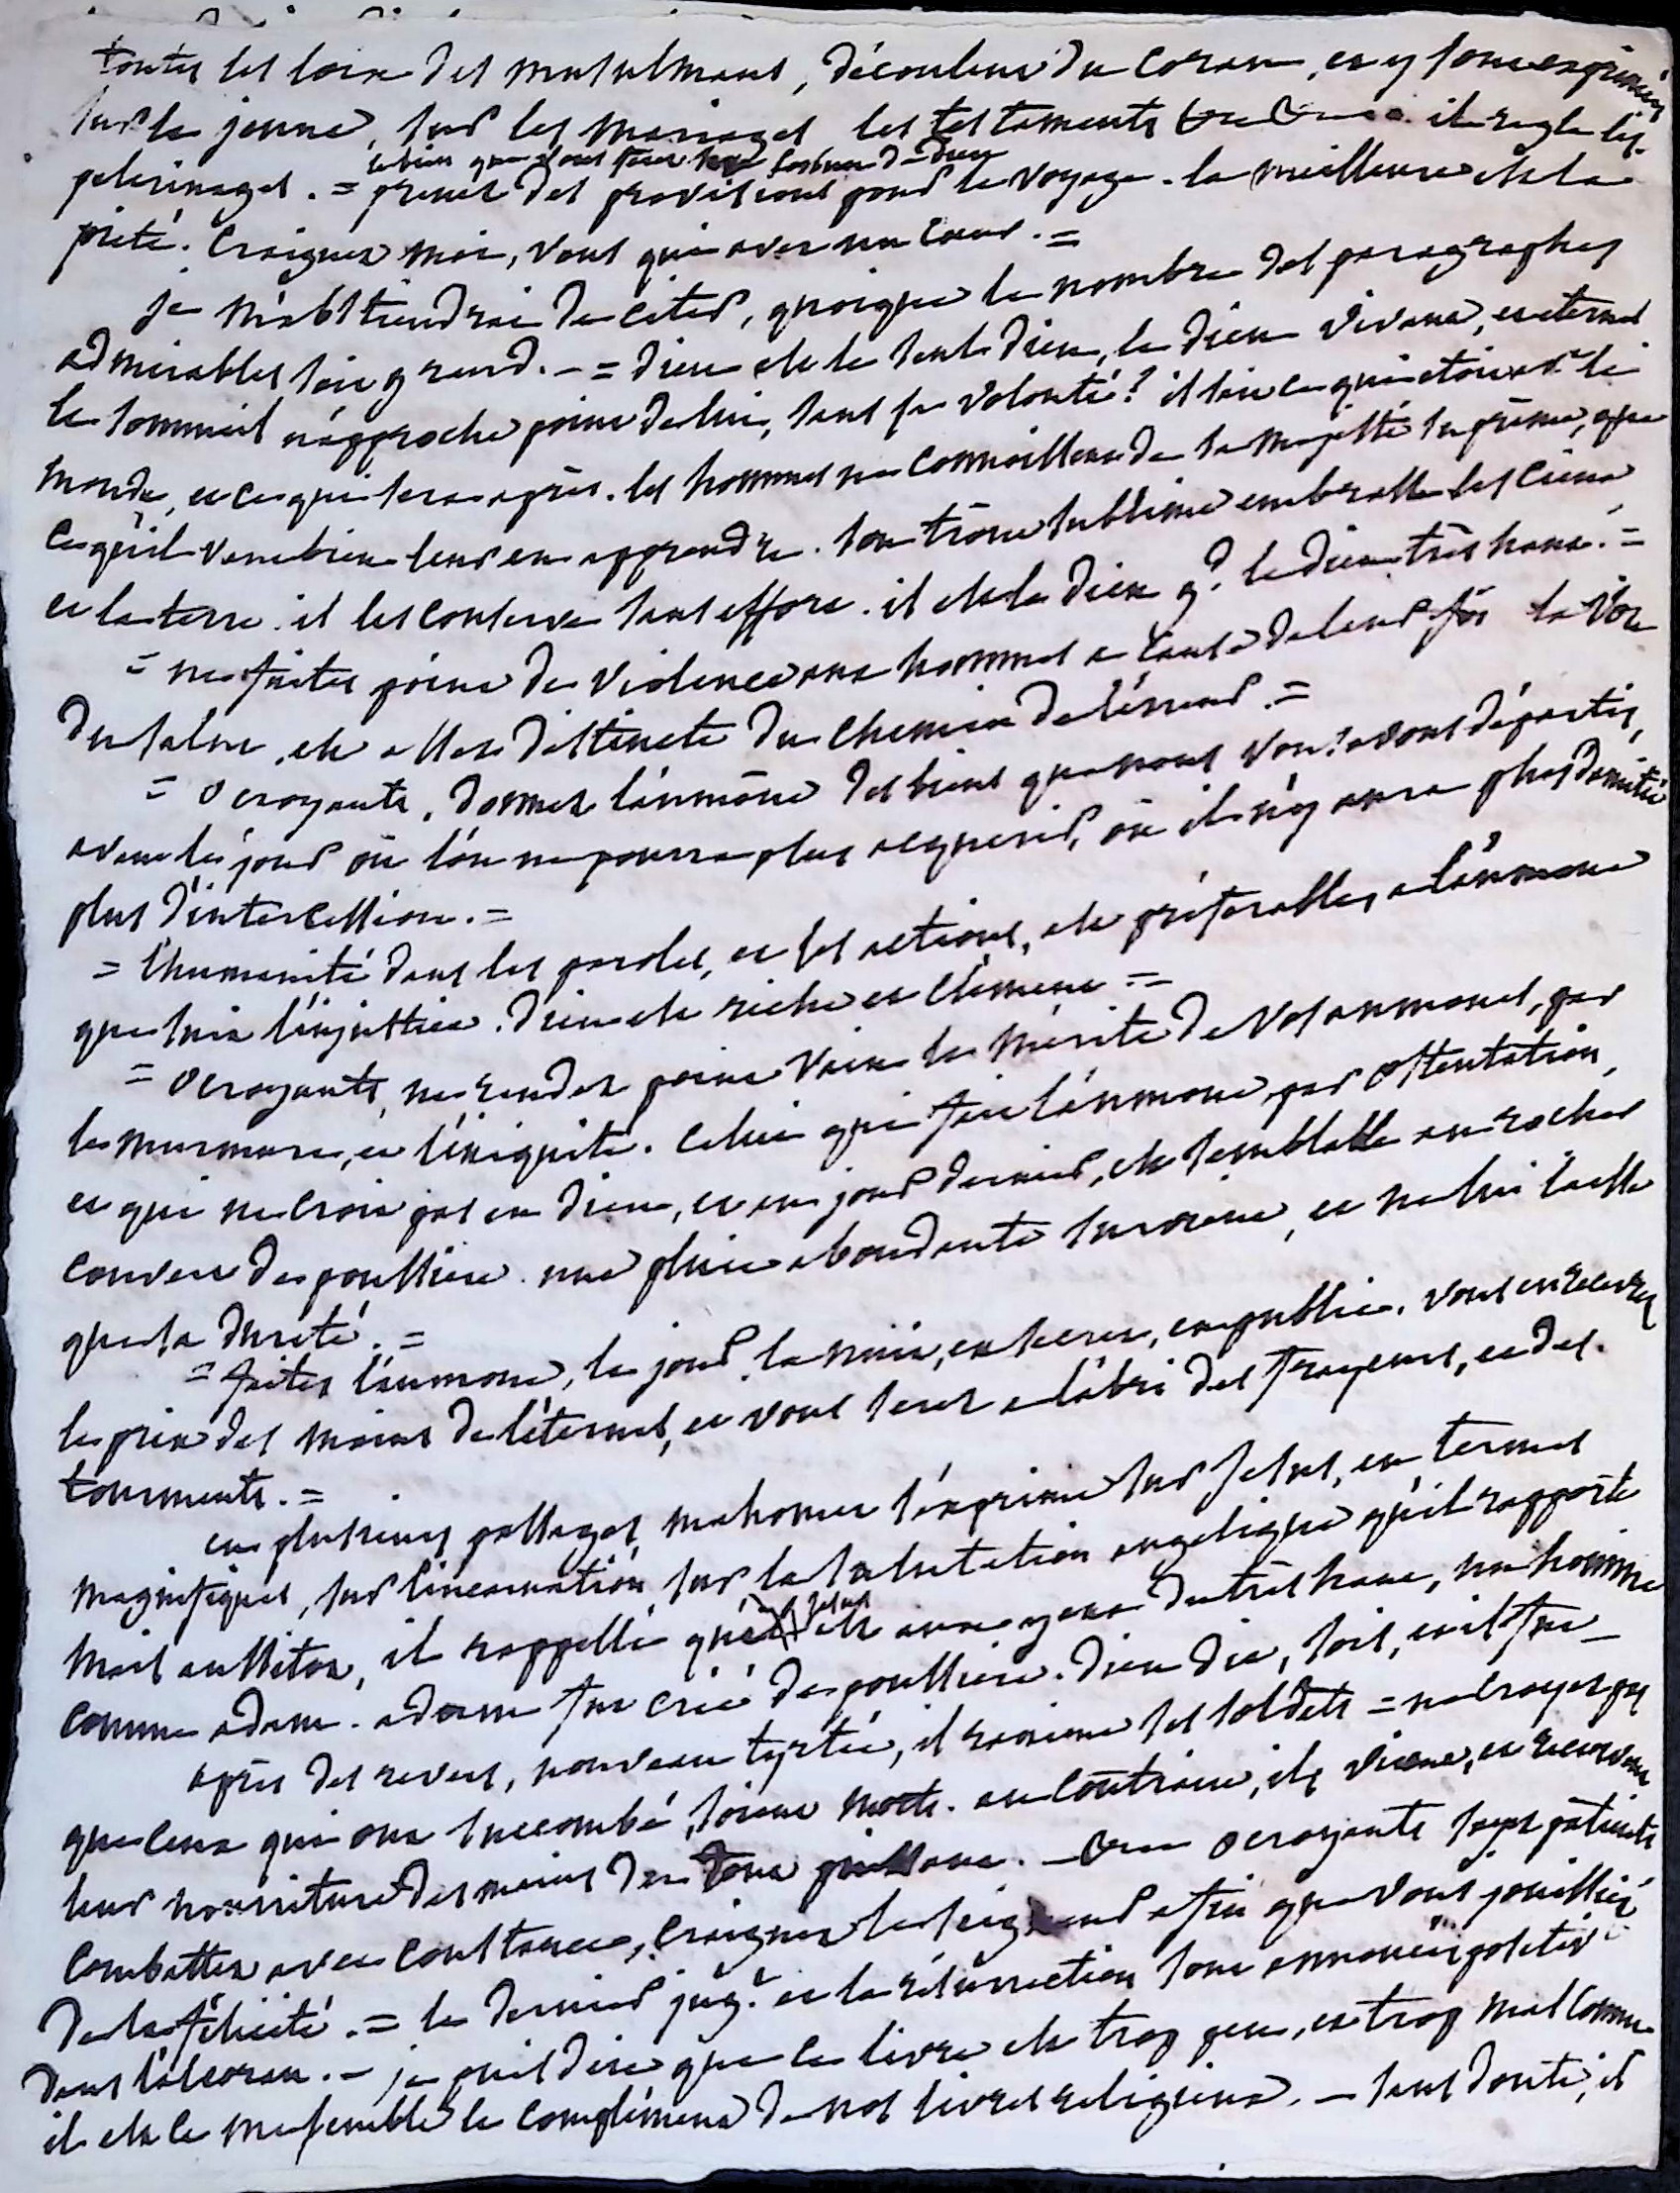 toutes les loix des musulmans, découlent du coran, et y sont exprimés
sur le jeune, sur les mariages les testaments il regle les
le bien que vous ferez sera connu de dieu
pelerinages. = prenez des provisions pour le voyage. la meilleure est la
pieté. craignez moi, vous qui avez un cœur. =
je m'abstiendrai de citer, quoique le nombre des paragraphes
admirables soit grand. - = dieu est le seul dieu, le dieu vivant, et eternel
le sommeil n'approche point de lui, sans sa volonté? il sait ce qui etoit av.t le
monde, et ce qui sera après. les hommes ne connoissent de sa majesté suprême, que
ce qu'il veut bien leur en apprendre. son trône sublime embrasse les cieux,
et la terre. il les conserve sans effort. il est le dieu g.d le dieu très haut. =
= ne faites point de violence aux hommes a cause de leur foi la voie
du salut, est assez distincte du chemin de l'erreur. =
= o croyants, donnez l'aumône des biens que nous vous avons départis,
avant le jour où l'on ne pourra plus acquerir, où il n'y aura plus d'amitié
plus d'intercession. =
= l'humanité dans les paroles, et les actions, est préférable, a l'aumone
que suit l'injustice. dieu est riche et clément =
= o croyants, ne rendez point vain le mérite de vos aumones, par
le murmure, et l'iniquité. celui qui fait l'aumone, par ostentation,
et qui ne croit pas en dieu, et au jour dernier, est semblable au rocher
couvert de poussiere. une pluie abondante survient, et ne lui laisse
que sa dureté. =
= faites l'aumone, le jour, la nuit, en secret, en public. vous en recevrez
le prix des mains de l'éternel, et vous serez a l'abri des frayeurs, et des
tourments. =
en plusieurs passages, mahomet s'exprime sur Jesus, en termes
magnifiques, sur l'incarnation, sur la salutation angelique qu'il rapporte
jesus
mais aussitot, il rappelle que est aux yeux du très haut, un homme
comme adam. adam fut créé de poussiere. dieu dit, sois, et il fut -
après des revers, nouveau tyrtée, il ranime ses soldats = ne croyez pas
que ceux qui ont succombé, soient morts. au contraire, ils vivent, et recoivent
leur nourriture des mains du tout puissant. - o croyants soyez patients
combattez avec constance, craignez le seigneur afin que vous jouissiez
de la félicité. = le dernier jug.t et la résurrection sont annoncés
dans l'alcoran. - je puis dire que ce livre est trop peu, et trop mal connu
il est ce me semble le complément de nos livres religieux. - sans doute, il